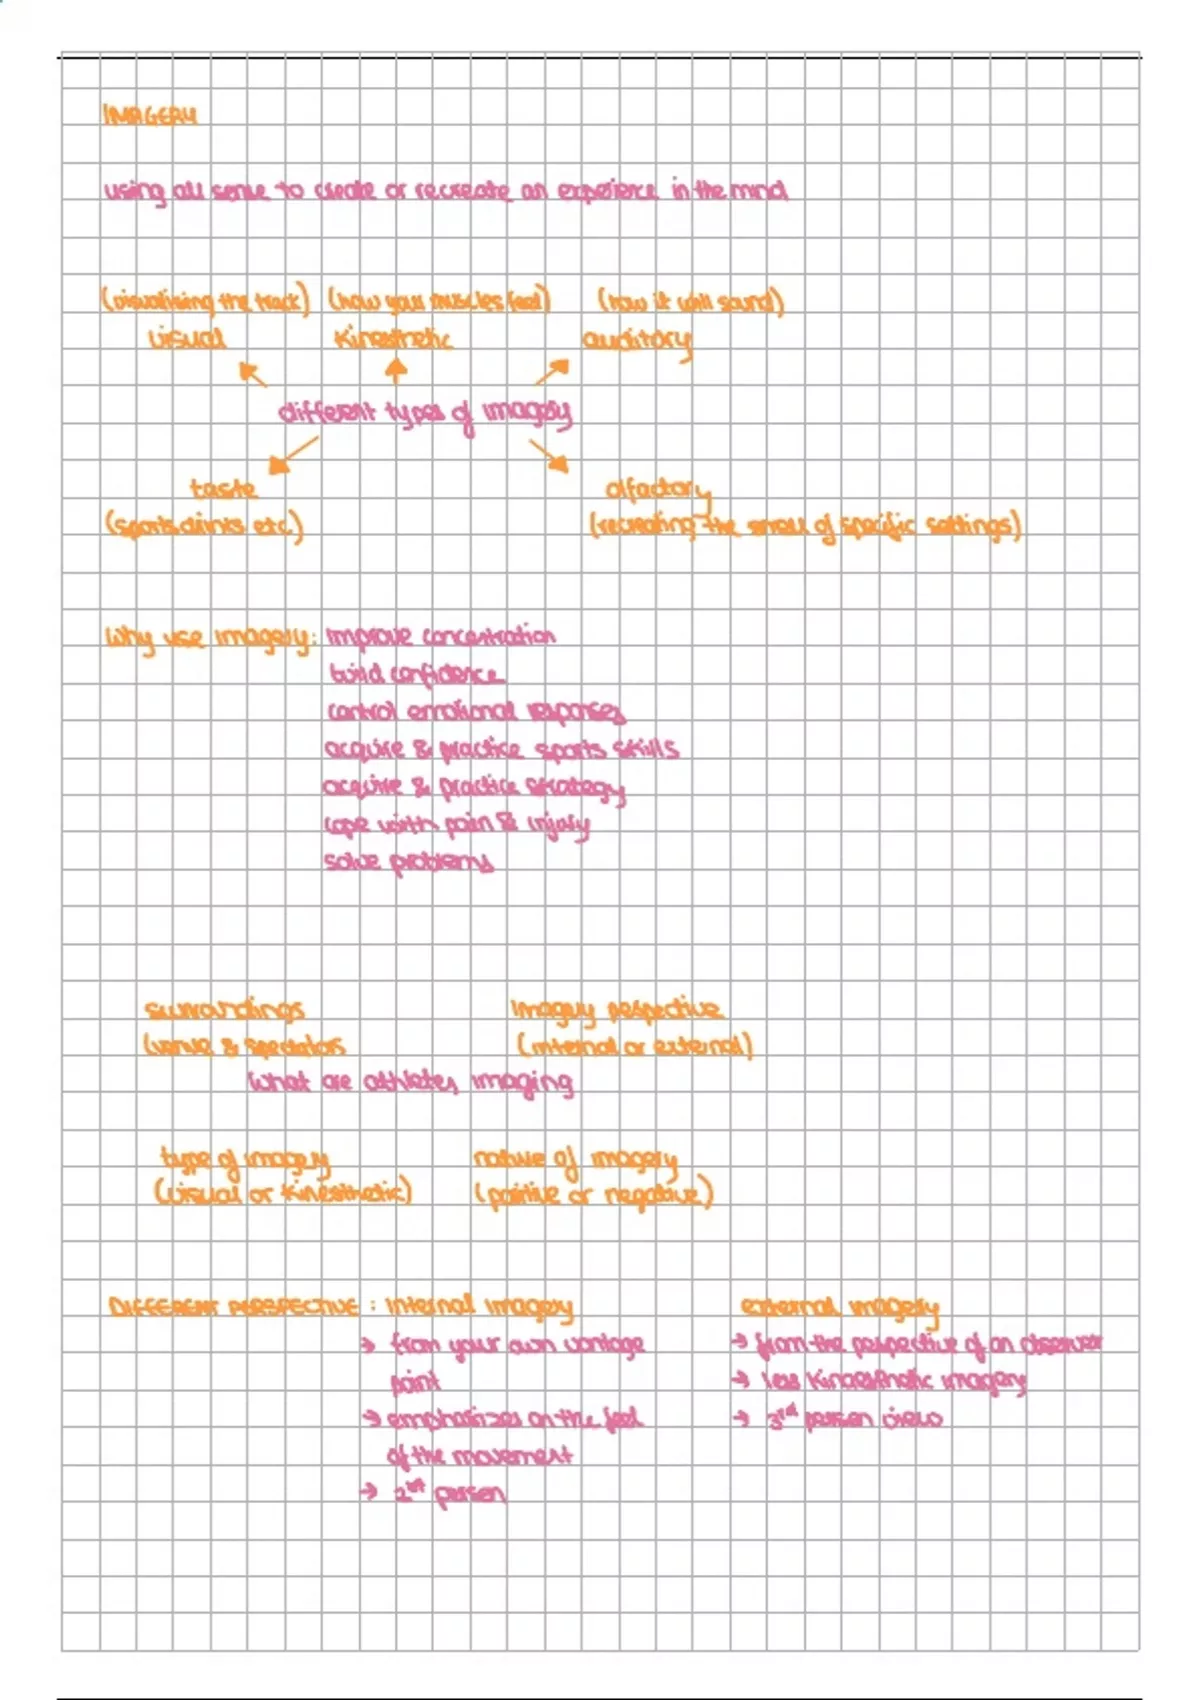 IMAGERY
using all sense to create or recreate an experience in the mind
(visualising the track) (how your muscles feel) (how it will sound)
visual kinesthetic auditory
different types of imagery
taste olfactory
(sports drinks etc.) (recreating the smell of specific settings)
Why use imagery: improve concentration
build confidence
control emotional responses
acquire & practice sports skills
acquire & practice strategy
cope with pain & injury
solve problems
surroundings Imagery pespective
(venue & spectators (internal or external)
What are athletes imaging
type of imagery nature of imagery
(visual or kinesthetic) (positive or negative)
DIFFERENT PERSPECTIVE : internal imagery external imagery
→ from your own vantage → from the pespective of an observer
point → less kinaesthetic imagery
→ emphasizes on the feel → 3rd person view
of the movement
→ person